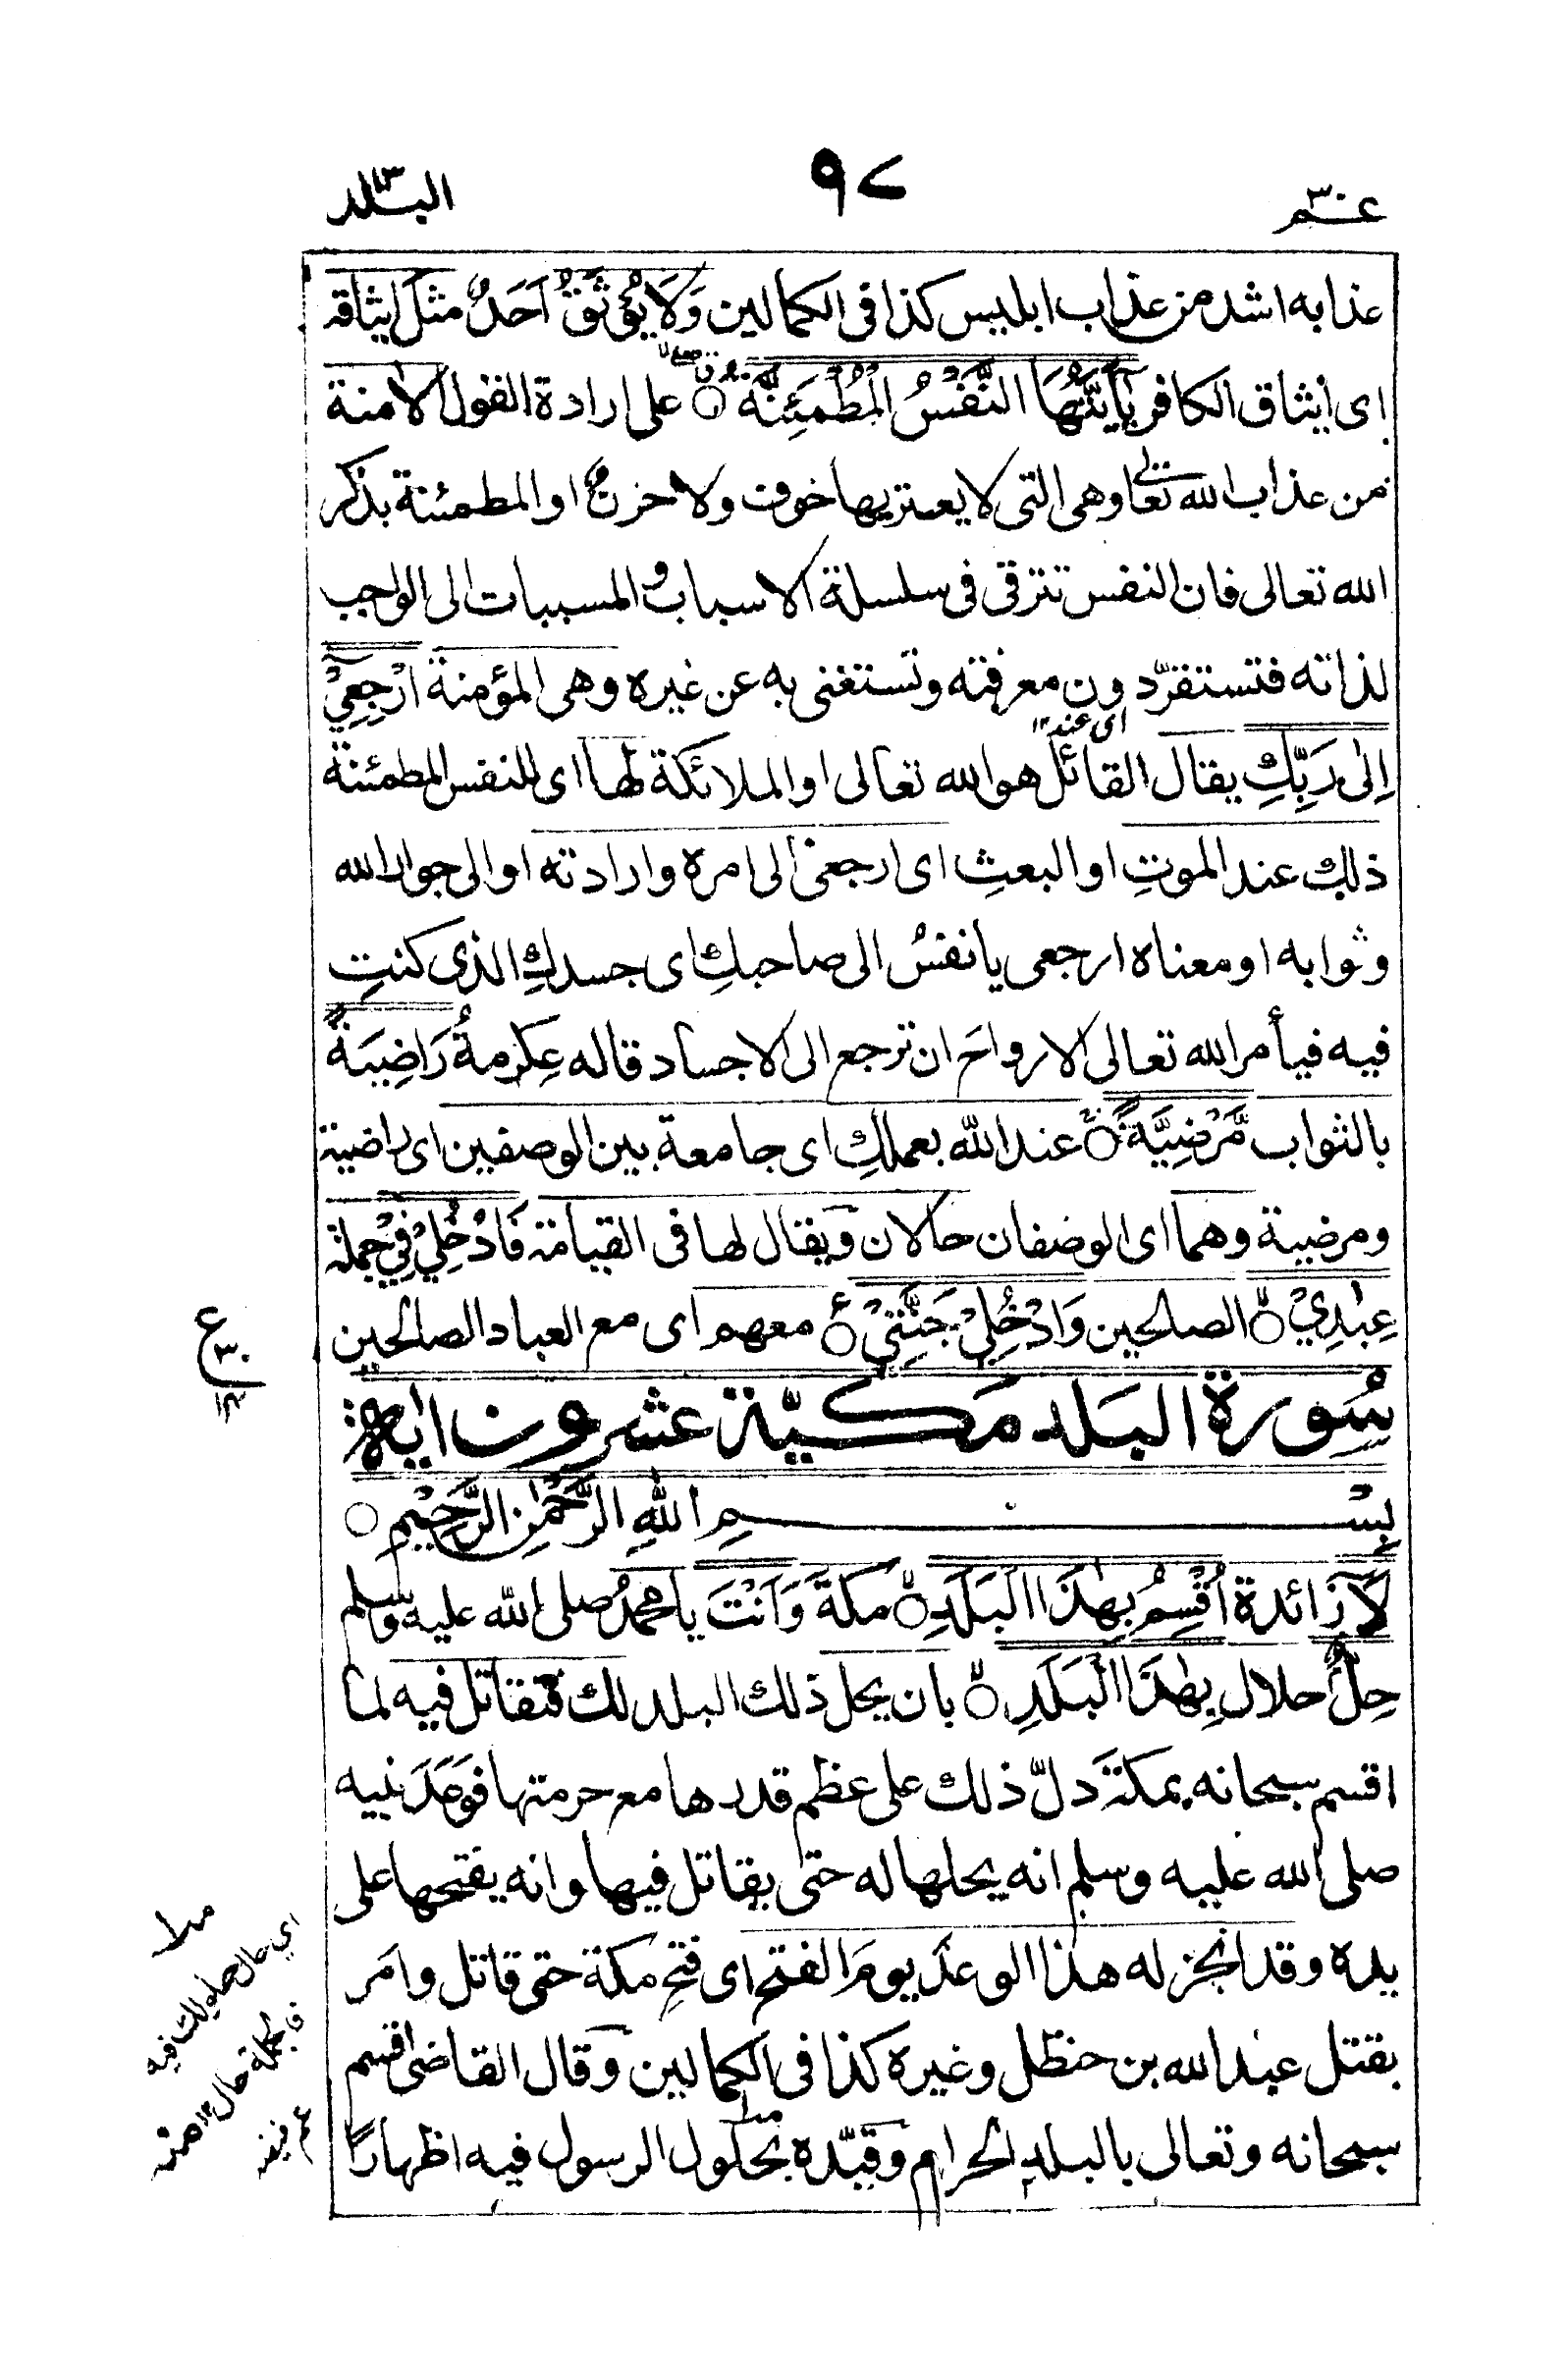 عم ٣٠
٩٧
البلد
عذابه اشد من عذاب ابليس كذا فى الكمالين وَلَا يُوْثَقُ اَحَدٌ مثل ايثاقه
اى ايثاق الكافر يٰٓاَيَّتُهَا النَّفْسُ الْمُطْمَئِنَّةُ ○ على ارادة القول الامنة
من عذاب الله تعالى وهى التى لا يعتريها خوف ولا حزن او المطمئنة بذكر
الله تعالى فان النفس تترقى فى سلسلة الاسباب و المسببات الى الواجب
لذاته فتستفز دون معرفته وتستغنى به عن غيره وهى المؤمنة ارْجِعِيْ
اى عند ١٢
اِلٰى رَبِّكِ يقال القائل هو الله تعالى او الملائكة لها اى للنفس المطمئنة
ذلك عند الموتِ او البعثِ اى ارجعى الى امره وارادته او الى جوار الله
وثوابه او معناه ارجعى يا نفسُ الى صاحبكِ اى جسدكِ الذى كنتِ
فيه فيأمر الله تعالى الارواحَ ان ترجع الى الاجساد قاله عِكرمةُ رَاضِيَةً
بالثواب مَّرْضِيَّةً ○ عند الله بعملكِ اى جامعة بين الوصفين اى راضية
ومرضية وهما اى الوصفان حالان ويقال لها فى القيامة فَادْخُلِيْ فِيْ جملة
عِبٰدِيْ ○ الصالحين وَادْخُلِيْ جَنَّتِيْ ○ معهم اى مع العباد الصالحين
ع
٣٠
١٤
سُورة البَلد مَكيّة عشرون اٰية
بِسْمِ اللهِ الرَّحْمٰنِ الرَّحِيْمِ ○
لَآ زائدة اُقْسِمُ بِهٰذَا الْبَلَدِ ○ مكةَ وَاَنْتَ يا محمدُ صلى الله عليه وسلم
حِلٌّۢ حلال بِهٰذَا الْبَلَدِ ○ بان يحل ذلك البلد لك فتقاتل فيه لما
اقسم سبحانه بمكة دلّ ذلك على عظم قدرها مع حرمتها فوَعَدَ نبيه
صلى الله عليه وسلم انه يحلها له حتى يقاتل فيها وانه يفتحها على
يده وقد انجز له هذا الوعدَ يومَ الفتح اى فتحِ مكة حتى قاتل وامَر
بقتل عبد الله بن حنظل وغيره كذا فى الكمالين وقال القاضى اقسم
سبحانه وتعالى بالبلد الحرام وقيّده بحلول الرسول فيه اظهارًا
اي حال
فالجملة حال ١٢ منه